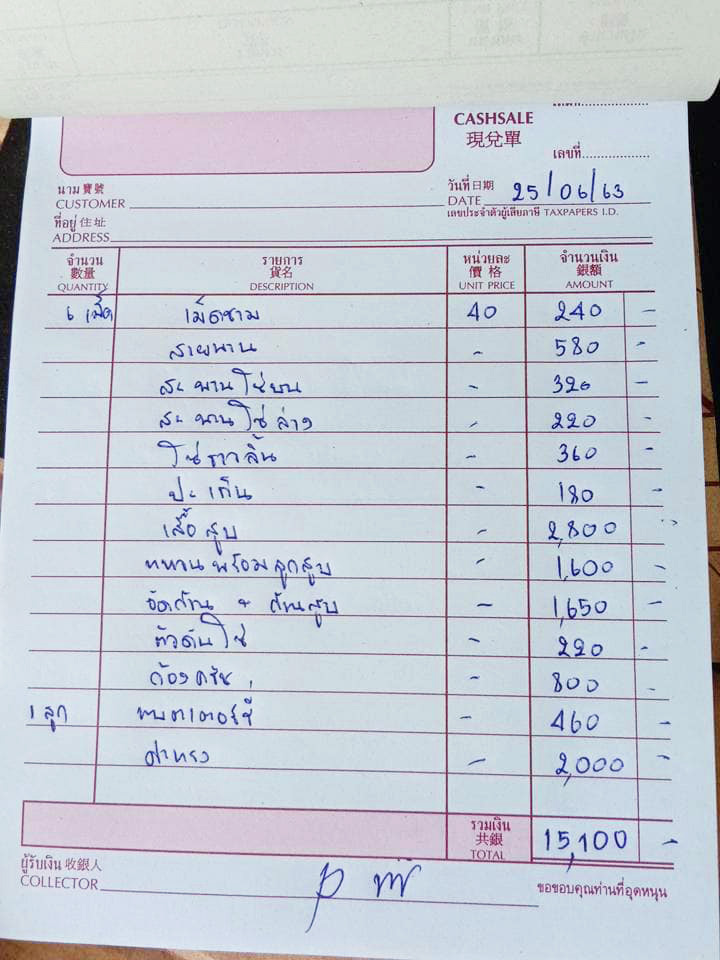 CASHSALE
現兌單
เลขที่
นาม 寶號
CUSTOMER
วันที่ 日期
DATE 25/06/63
ที่อยู่ 住址
ADDRESS
เลขประจำตัวผู้เสียภาษี TAXPAPERS I.D.
จำนวน รายการ หน่วยละ จำนวนเงิน
數量 貨名 價格 銀額
QUANTITY DESCRIPTION UNIT PRICE AMOUNT
6 เม็ด เม็ดชาม 40 240 -
สายพาน - 580 -
สะพานโซ่บน - 320 -
สะพานโซ่ล่าง - 220 -
โซ่ราวลิ้น - 360 -
ปะเก็น - 180 -
เสื้อสูบ - 2,800
แหวนพร้อมลูกสูบ - 1,600 -
อัดก้าน + ก้านสูบ - 1,650 -
ตัวดันโซ่ - 220 -
- 800 -
1 ลูก แบตเตอร์รี่ - 460 -
ค่าแรง - 2,000 -
รวมเงิน
共銀
TOTAL 15,100 -
ผู้รับเงิน 收銀人
COLLECTOR
ขอขอบคุณท่านที่อุดหนุน